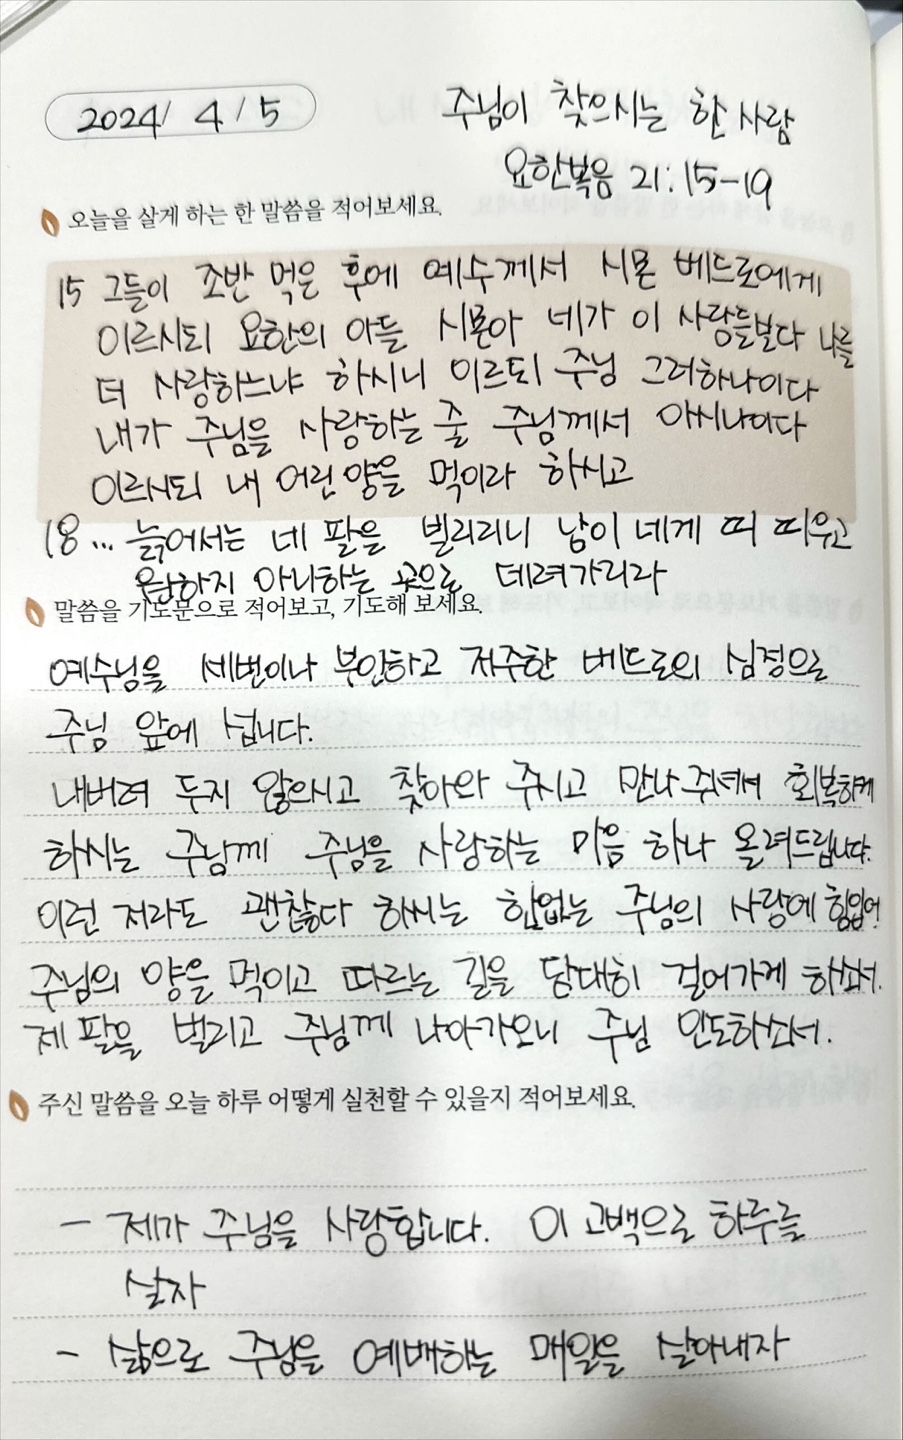 2024/ 4 / 5
주님이 찾으시는 한 사람
요한복음 21:15-19
오늘을 살게 하는 한 말씀을 적어보세요.
15 그들이 조반 먹은 후에 예수께서 시몬 베드로에게
이르시되 요한의 아들 시몬아 네가 이 사람들보다 나를
더 사랑하느냐 하시니 이르되 주님 그러하나이다
내가 주님을 사랑하는 줄 주님께서 아시나이다
이르시되 내 어린 양을 먹이라 하시고
18 ... 늙어서는 네 팔을 벌리리니 남이 네게 띠 띠우고
원하지 아니하는 곳으로 데려가리라
말씀을 기도문으로 적어보고, 기도해 보세요.
예수님을 세번이나 부인하고 저주한 베드로의 심정으로
주님 앞에 섭니다.
내버려 두지 않으시고 찾아와 주시고 만나 주셔서 회복하게
하시는 주님께 주님을 사랑하는 마음 하나 올려드립니다.
이런 저라도 괜찮다 하시는 한없는 주님의 사랑에 힘입어
주님의 양을 먹이고 따르는 길을 담대히 걸어가게 하소서.
제 팔을 벌리고 주님께 나아가오니 주님 인도하소서.
주신 말씀을 오늘 하루 어떻게 실천할 수 있을지 적어보세요.
- 제가 주님을 사랑합니다. 이 고백으로 하루를
살자
- 삶으로 주님을 예배하는 매일을 살아내자